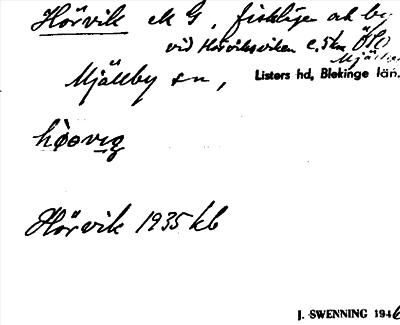 Hörvik ek G, fiskläge och by
vid Hörviksviken c. 5 km ÖSO
Mjällby
Mjällby sn, Listers hd, Blekinge län.
hòɵvig
Hörvik 1935 kb
J. SWENNING 1946